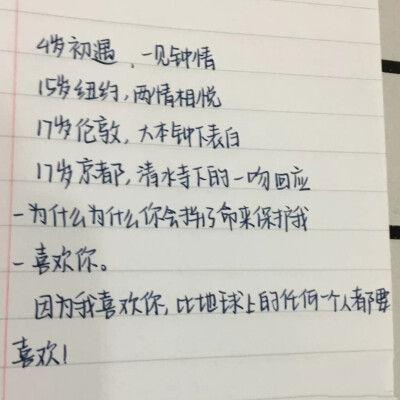 4岁初遇，一见钟情
15岁纽约，两情相悦
17岁伦敦，大本钟下表白
17岁京都，清水寺下的一吻回应
-为什么为什么你会拼了命来保护我
-喜欢你。
因为我喜欢你，比地球上的任何一个人都要
喜欢！